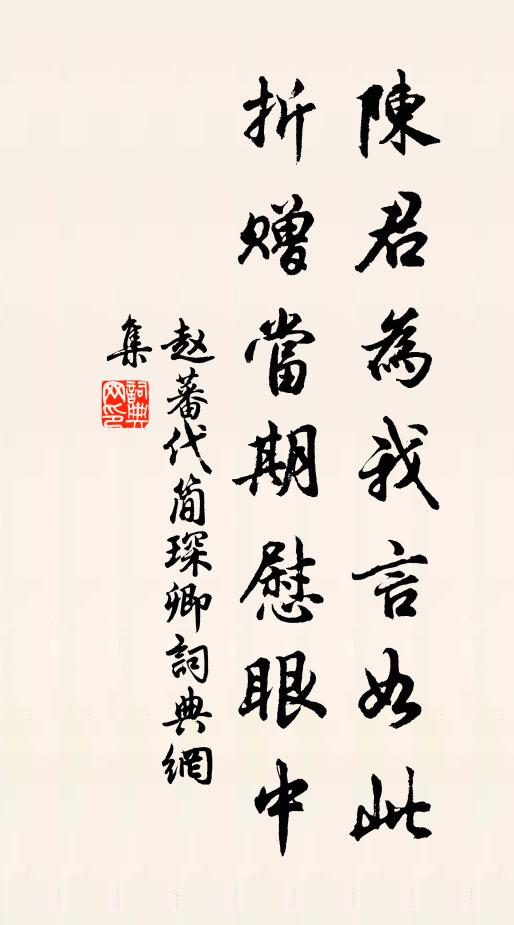 陳君為我言如此
折贈當期慰眼中
赵蕃代簡琛卿詞典網
集
詞典
网印